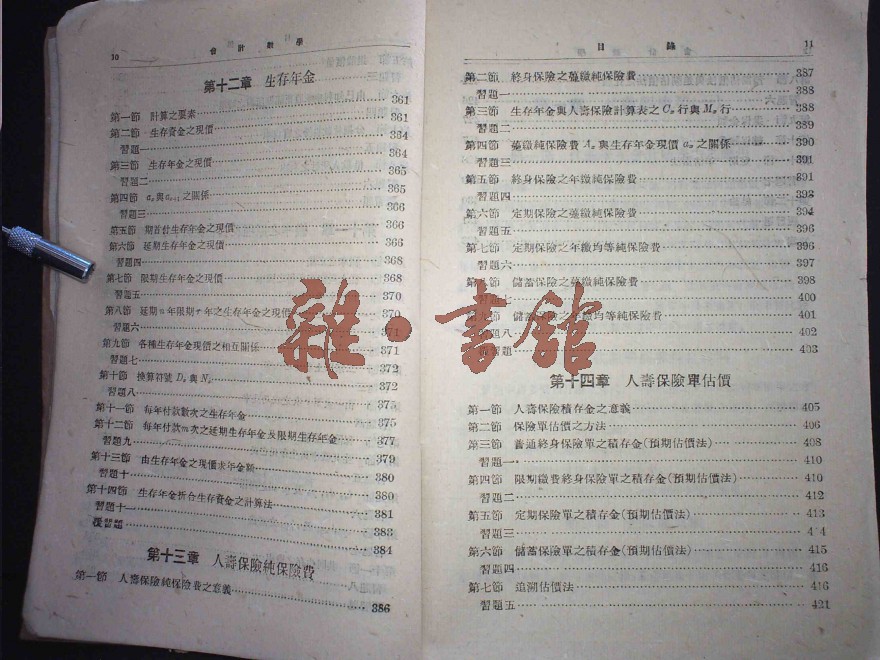 10 會計數學
第十二章 生存年金
361
第一節 計算之要素 361
第二節 生存資金之現價 364
習題一 364
第三節 生存年金之現價 365
習題二 365
第四節 aₓ與aₓ₊₁之關係 366
習題三 366
第五節 期首付生存年金之現價 366
第六節 延期生存年金之現價
習題四 368
第七節 限期生存年金之現價
習題五 370
第八節 延期n年限期r年之生存年金之現價 370
習題六 371
第九節 各種生存年金現價之相互關係 371
習題七 372
第十節 換算符號Dₓ與Nₓ 372
習題八 375
第十一節 每年付款數次之生存年金 375
第十二節 每年付款m次之延期生存年金及限期生存年金 377
習題九 379
第十三節 由生存年金之現價求年金額 380
習題十 380
第十四節 生存年金折合生存資金之計算法 381
習題十一 383
複習題 384
第十三章 人壽保險純保險費
第一節 人壽保險純保險費之意義 386
目錄 11
第二節 終身保險之躉繳純保險費 387
習題一 388
第三節 生存年金與人壽保險計算表之Cₓ行與Mₓ行 388
習題二 389
第四節 躉繳純保險費Aₓ與生存年金現價aₓ之關係 390
習題三 391
第五節 終身保險之年繳純保險費 391
習題四 393
第六節 定期保險之躉繳純保險費 394
習題五 396
第七節 定期保險之年繳均等純保險費 396
習題六 397
節 儲蓄保險之躉繳純保險費 398
習題七 400
第九節 儲蓄保險之年繳均等純保險費 401
習題八 402
複習題 403
雜·書館
第十四章 人壽保險單估價
第一節 人壽保險積存金之意義 405
第二節 保險單估價之方法 406
第三節 普通終身保險單之積存金(預期估價法) 408
習題一 410
第四節 限期繳費終身保險單之積存金(預期估價法) 410
習題二 412
第五節 定期保險單之積存金(預期估價法) 413
習題三
第六節 儲蓄保險單之積存金(預期估價法) 415
習題四 416
第七節 追溯估價法 416
習題五 421